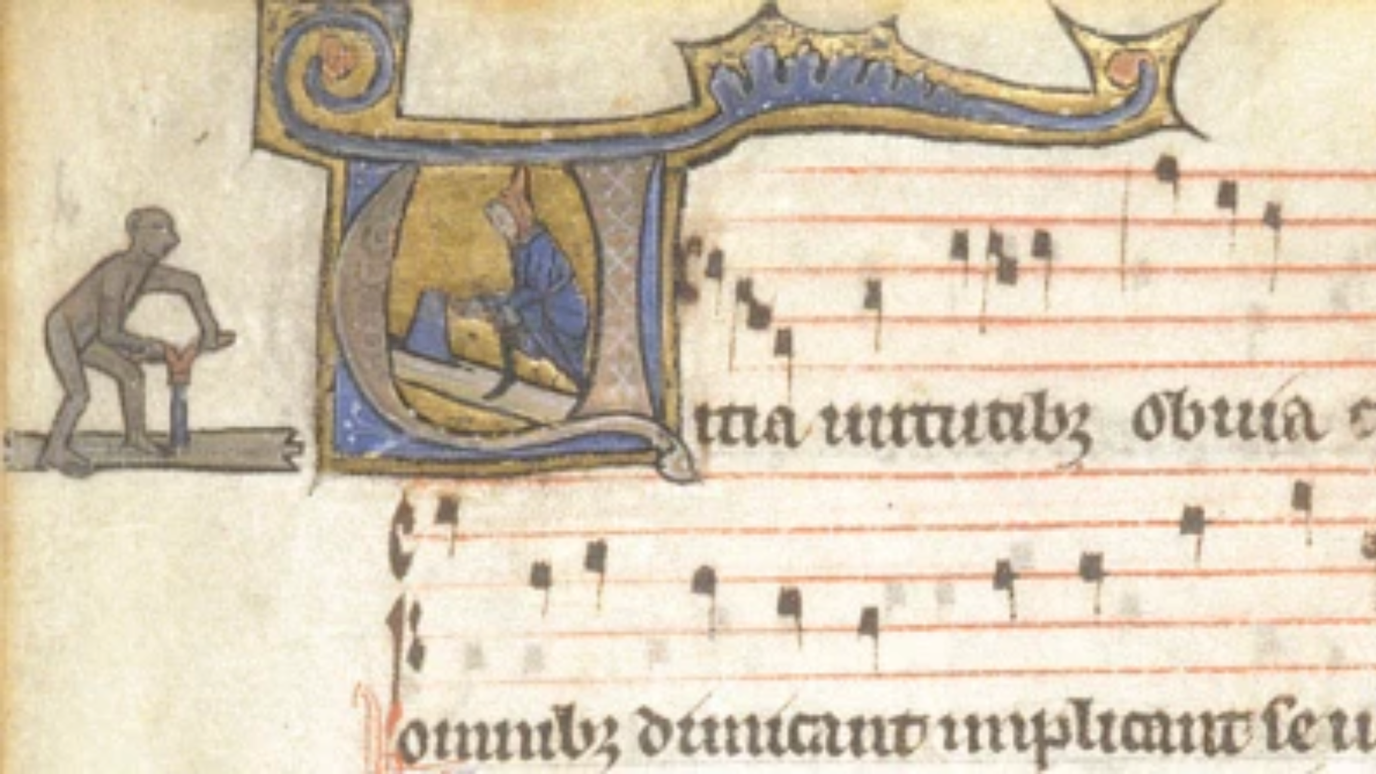 Uitia uirtutibꝫ obuia
omnibꝫ dimicant implicant se